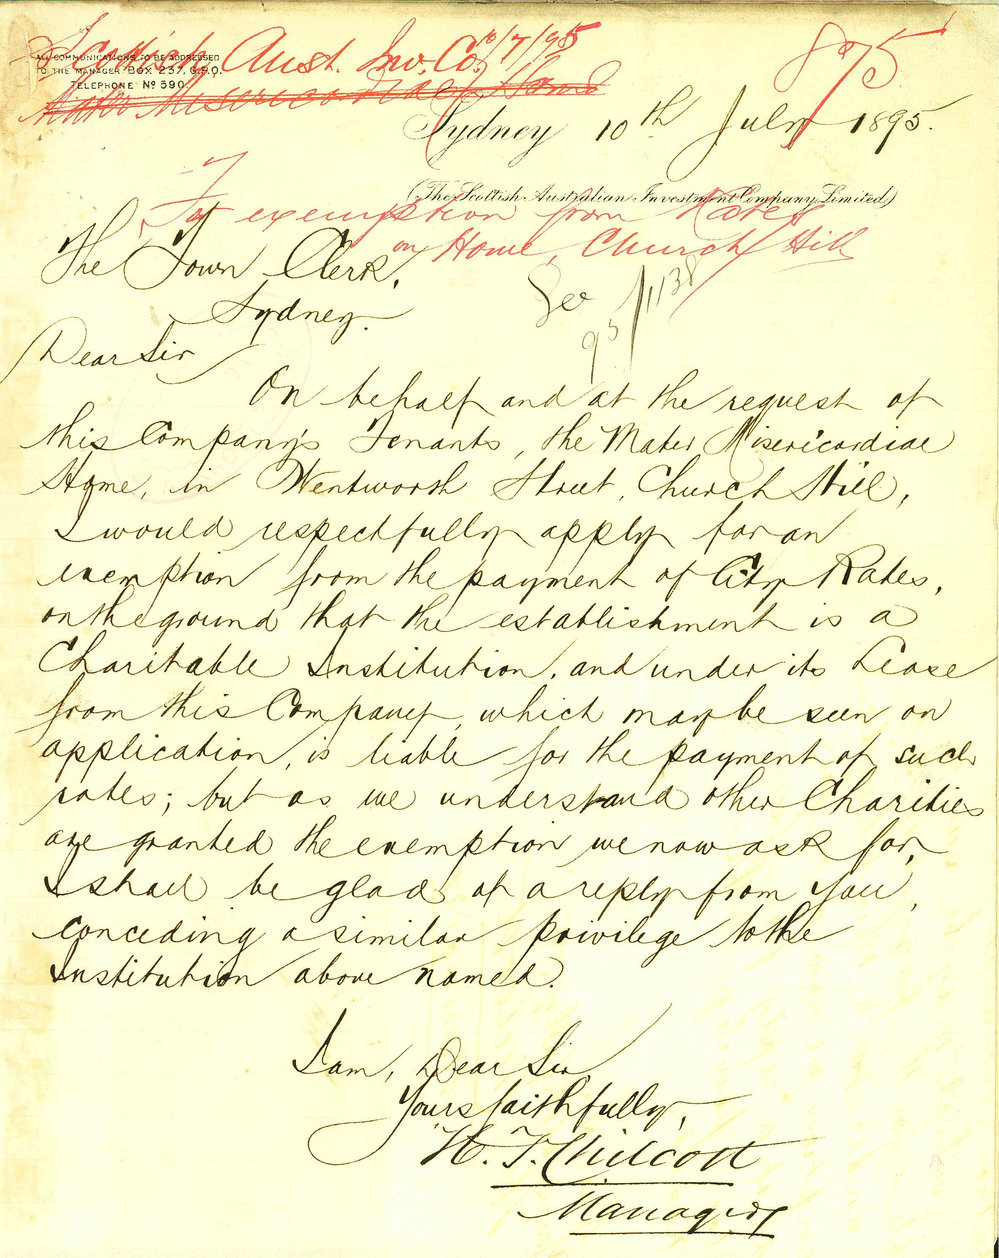 Scottish Aust. Inv. Co. 10/7/95
875
ALL COMMUNICATIONS TO BE ADDRESSED
TO THE MANAGER BOX 257, G.P.O.
TELEPHONE Nº 590
Mater Misericordiae Home
Sydney 10th July 1895.
(The Scottish Australian Investment Company Limited)
For exemption from Rates
on Home, Church Hill
The Town Clerk,
Sydney.
See 95/1138
Dear Sir
On behalf and at the request of
this Company's Tenants, the Mater Misericordiae
Home, in Wentworth Street, Church Hill,
I would respectfully apply for an
exemption from the payment of City Rates,
on the ground that the establishment is a
Charitable Institution, and under its Lease
from this Company, which may be seen on
application, is liable for the payment of such
rates; but as we understand other Charities
are granted the exemption we now ask for,
I shall be glad of a reply from you,
conceding a similar privilege to the
Institution above named.
I am, Dear Sir
Yours faithfully,
H. F. Chilcott
Manager